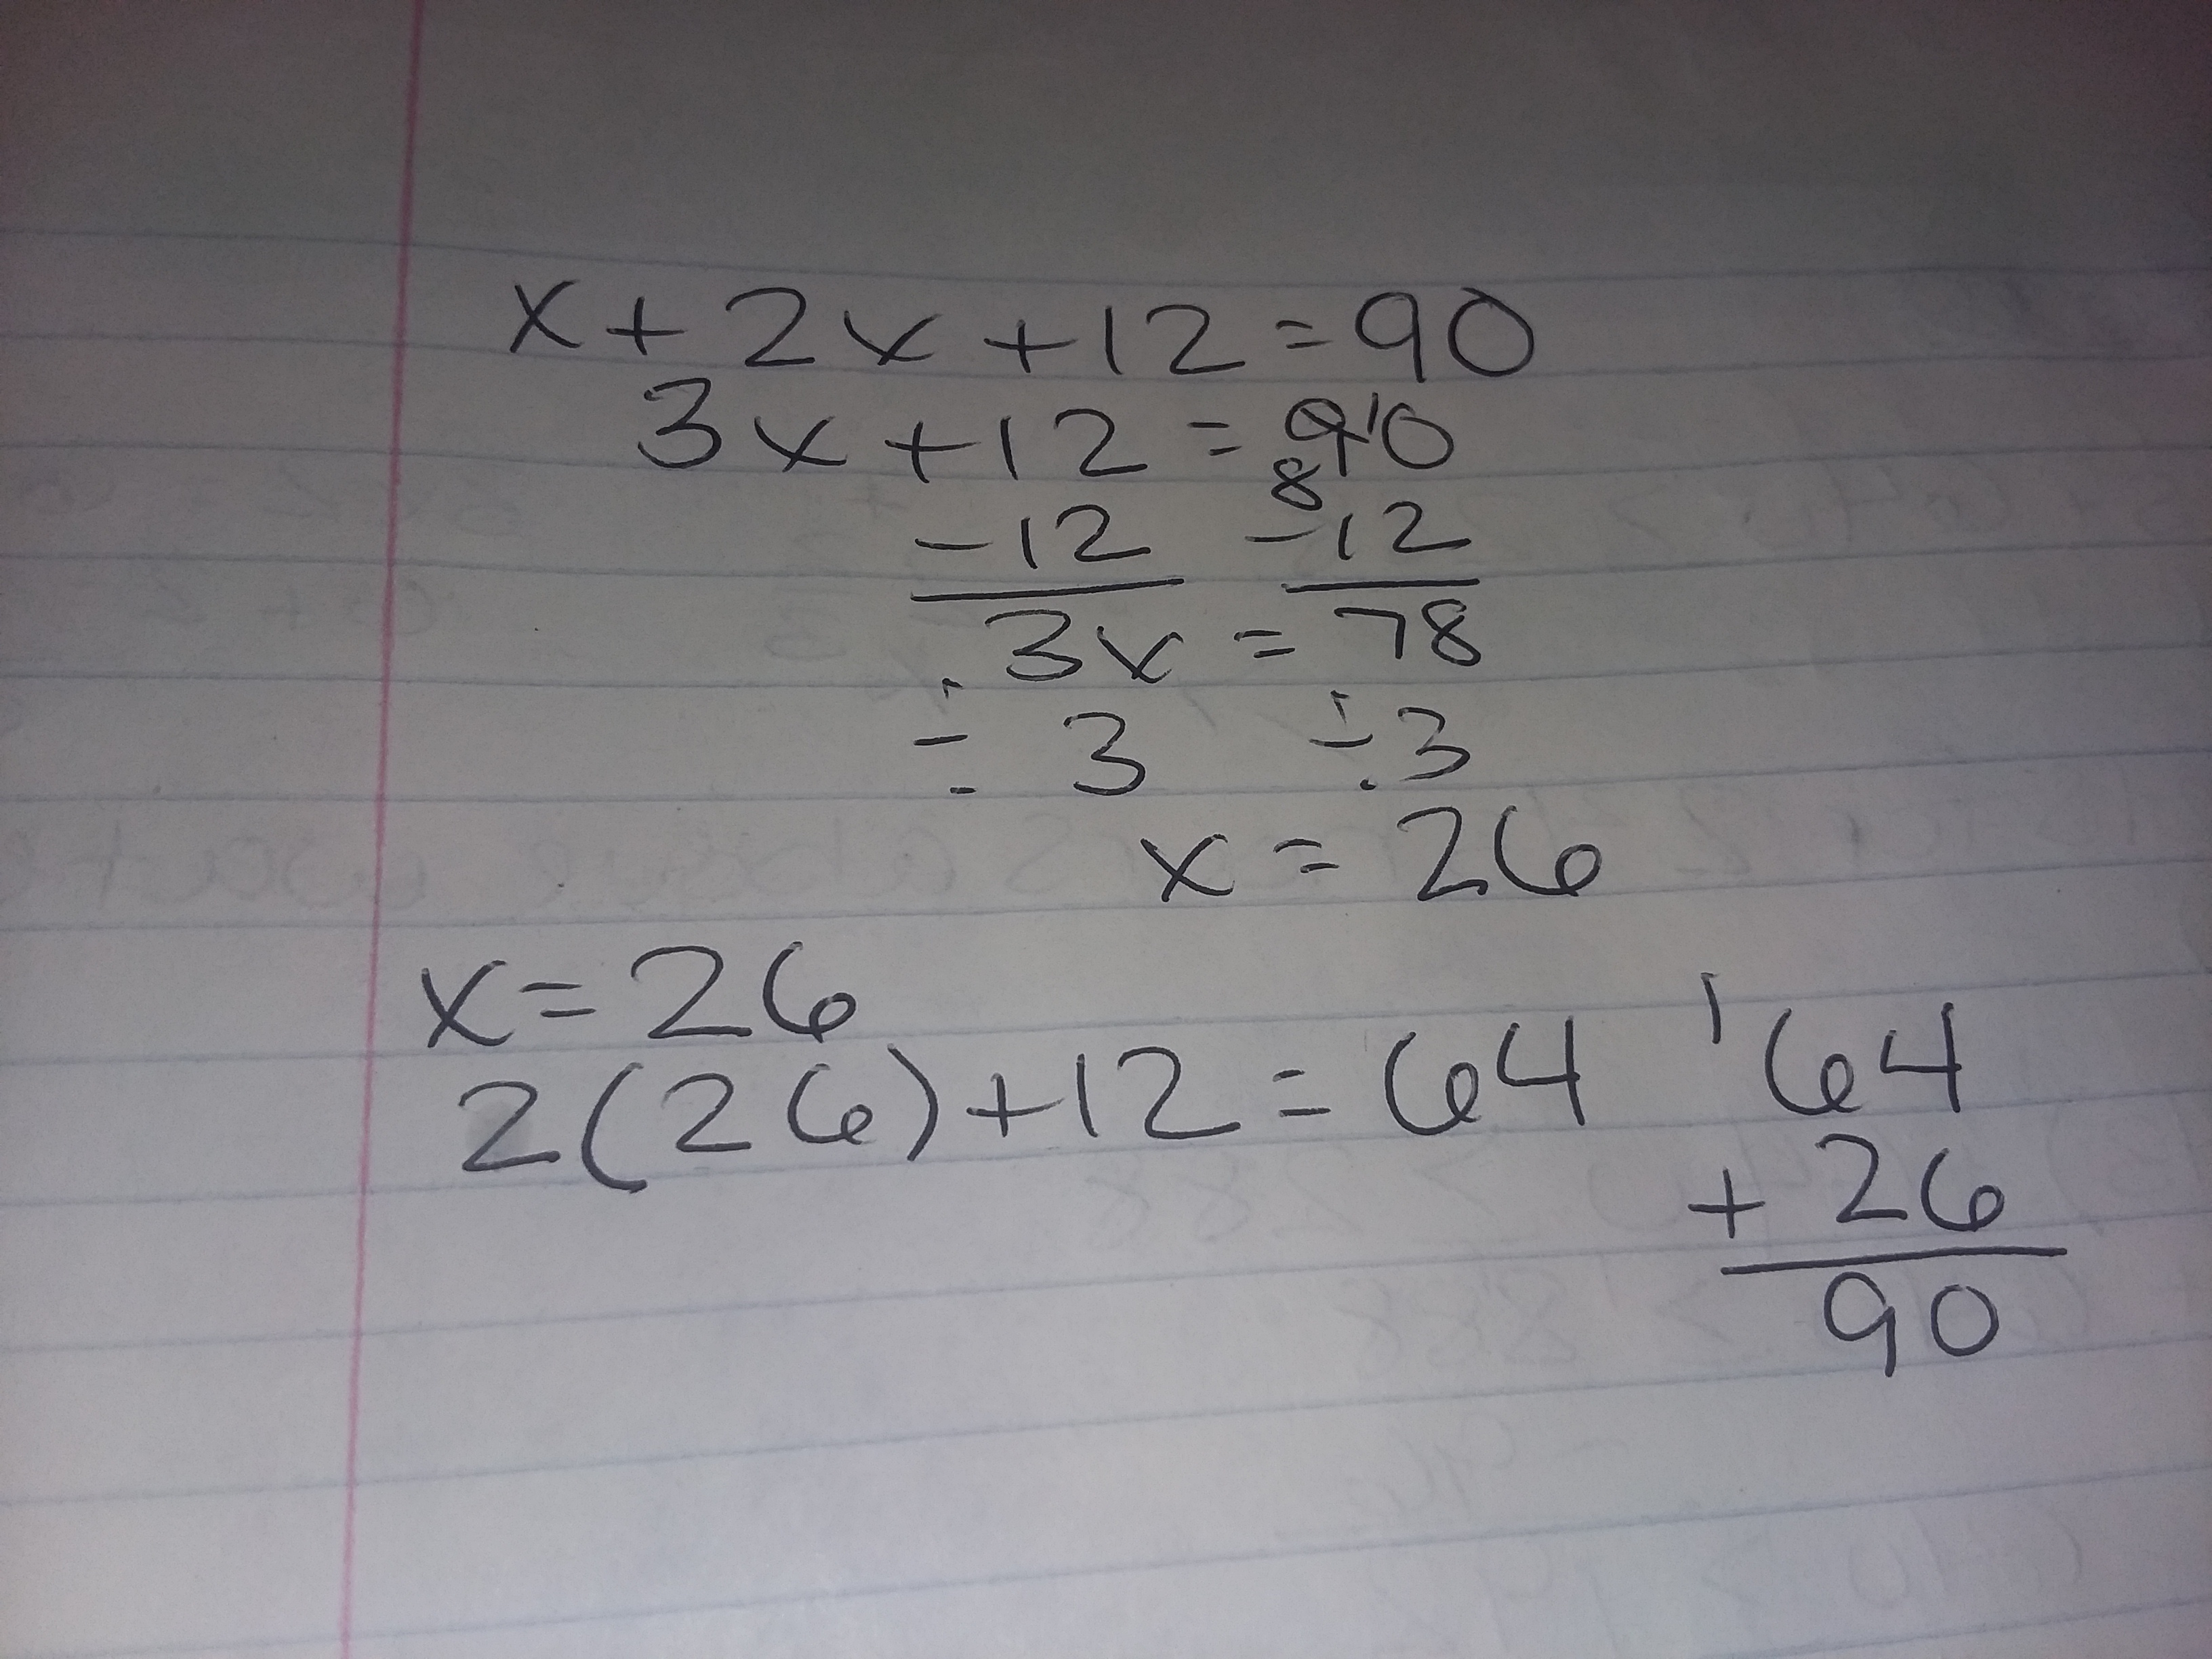 x + 2x + 12 = 90
3x + 12 = 9 10
8
- 12 - 12
3x = 78
÷ 3 ÷ 3
x = 26
x = 26
2(26) + 12 = 64
1
64
+ 26
90